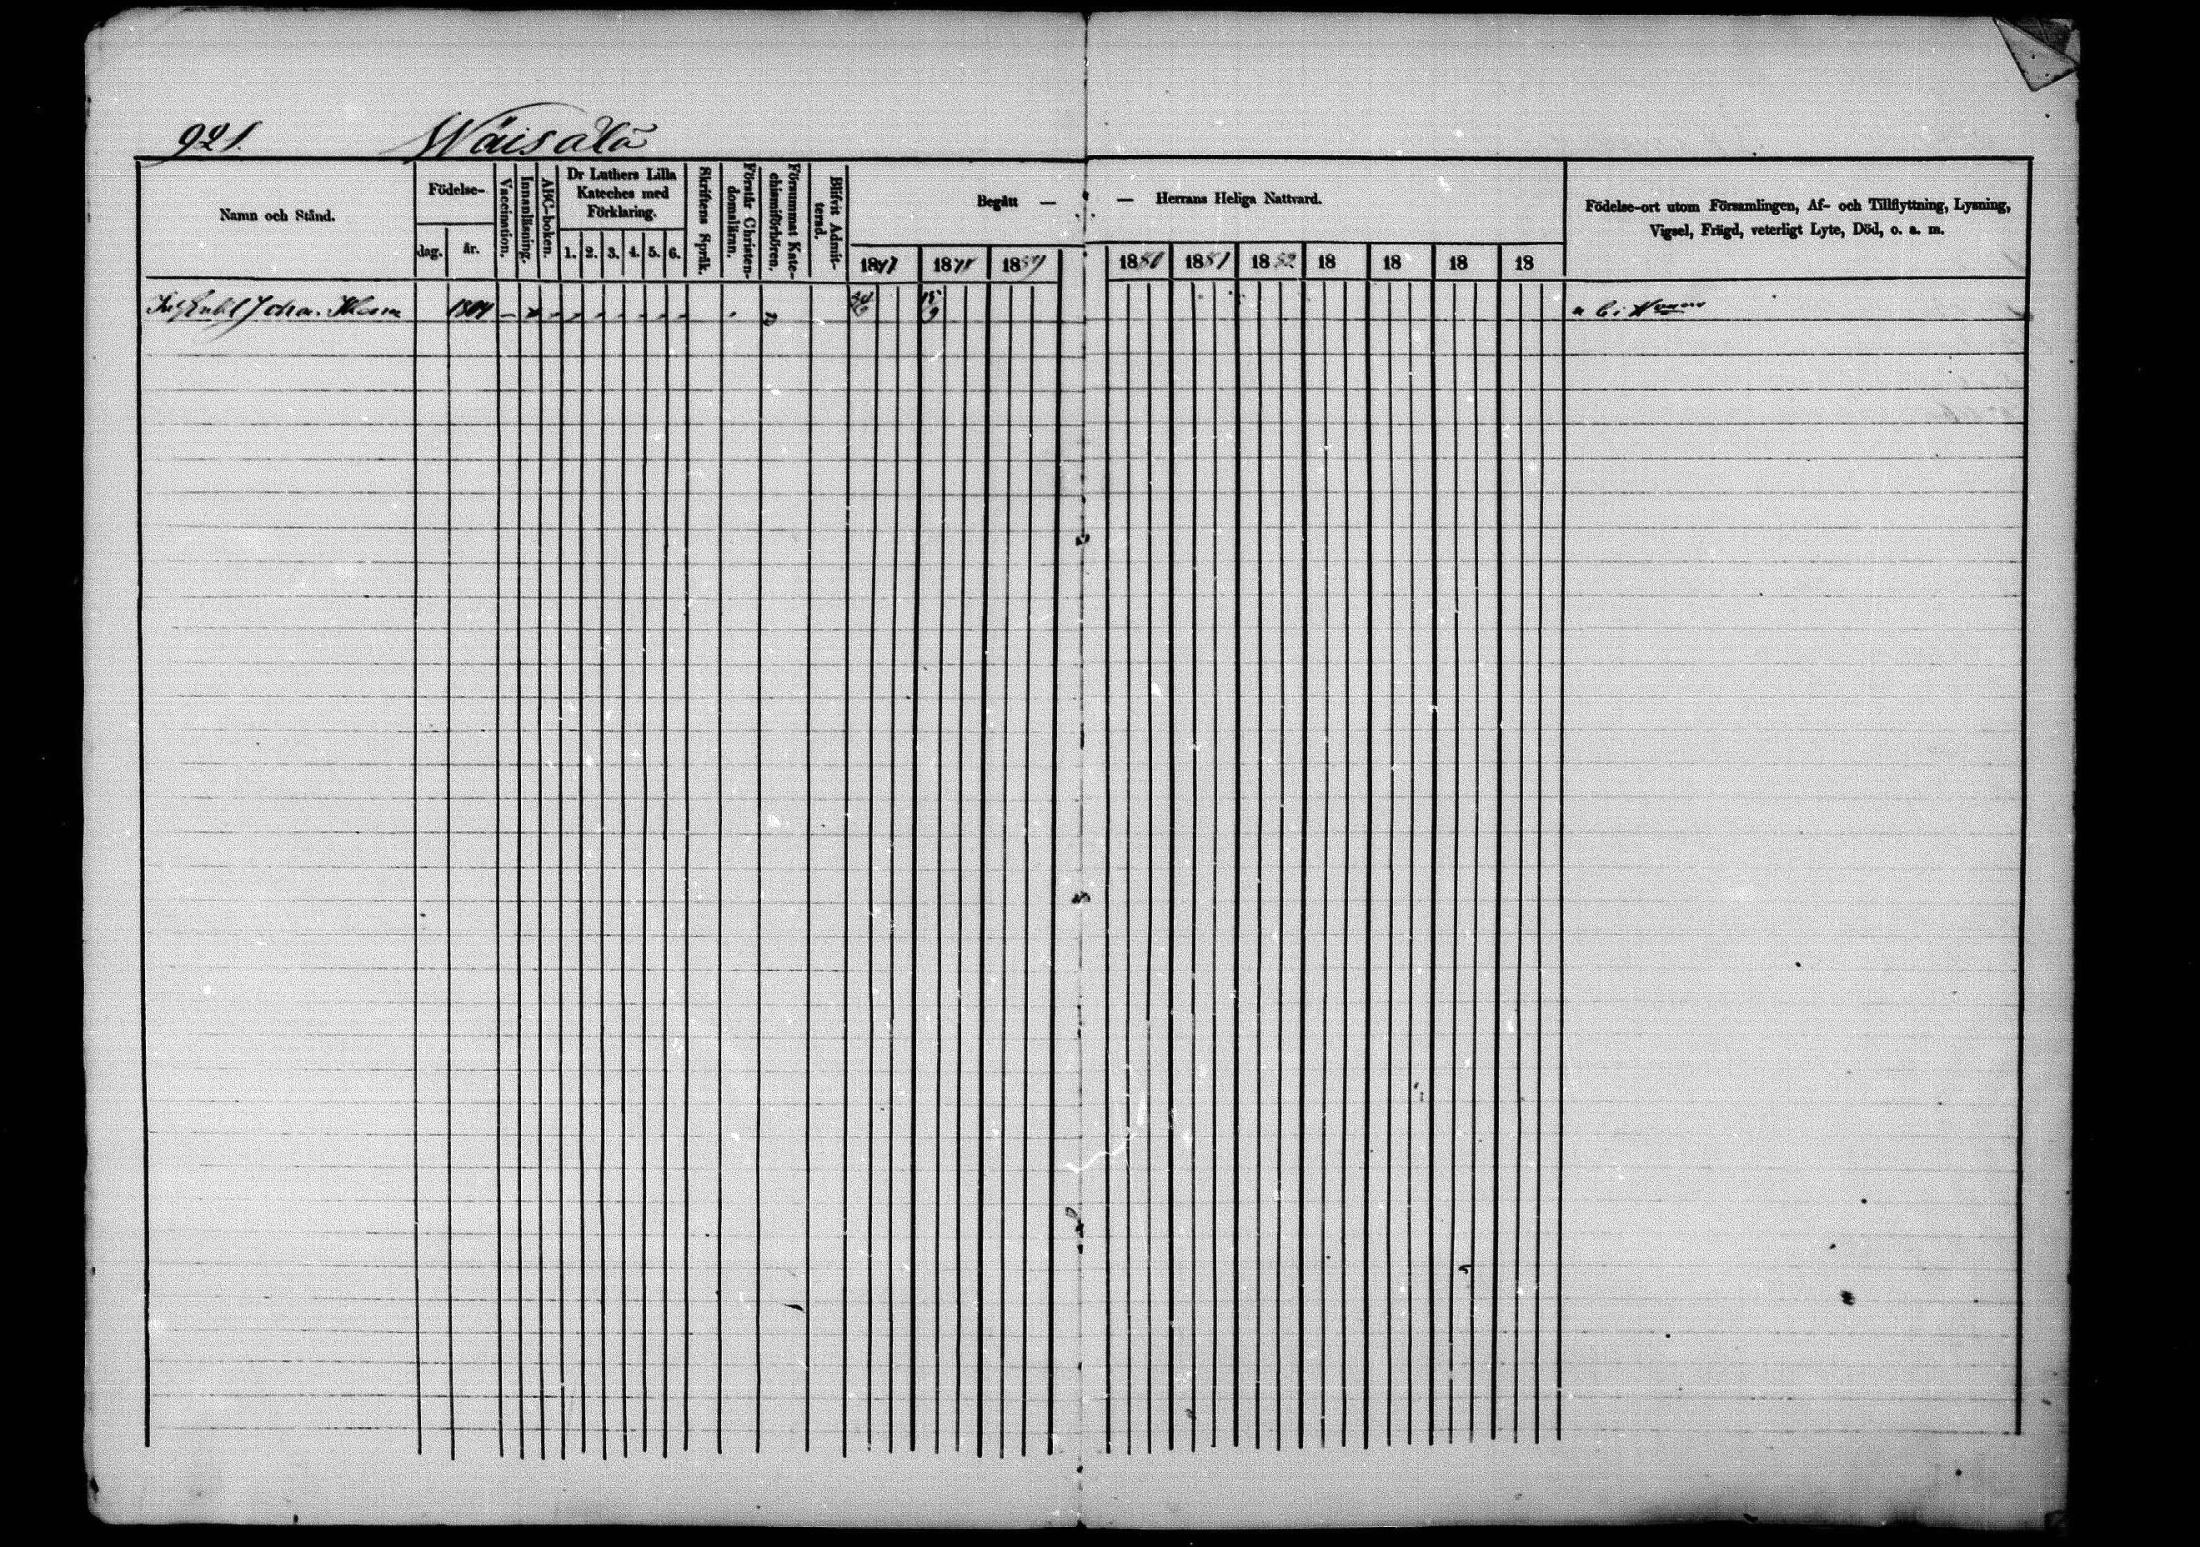 921. Wäisälä
Namn och Stånd.
Födelse-
dag.
år.
Vaccination.
Innanläsning.
ABC-boken.
Dr Luthers Lilla
Kateches med
Förklaring.
1. 2. 3. 4. 5. 6.
Skriftens Språk.
Förstår Christen-
domsläran.
Försummat Kate-
chismiförhören.
Blifvit Admit-
terad.
Begått —
— Herrans Heliga Nattvard.
1847 1848 1849 1850 1851 1852 18 18 18 18
Födelse-ort utom Församlingen, Af- och Tillflyttning, Lysning,
Vigsel, Frägd, veterligt Lyte, Död, o. a. m.
Johan